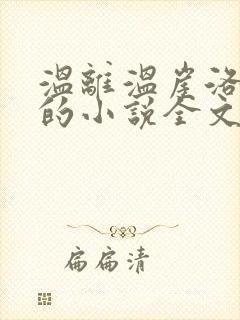 温離温崖洛
的小说全文
扁扁清